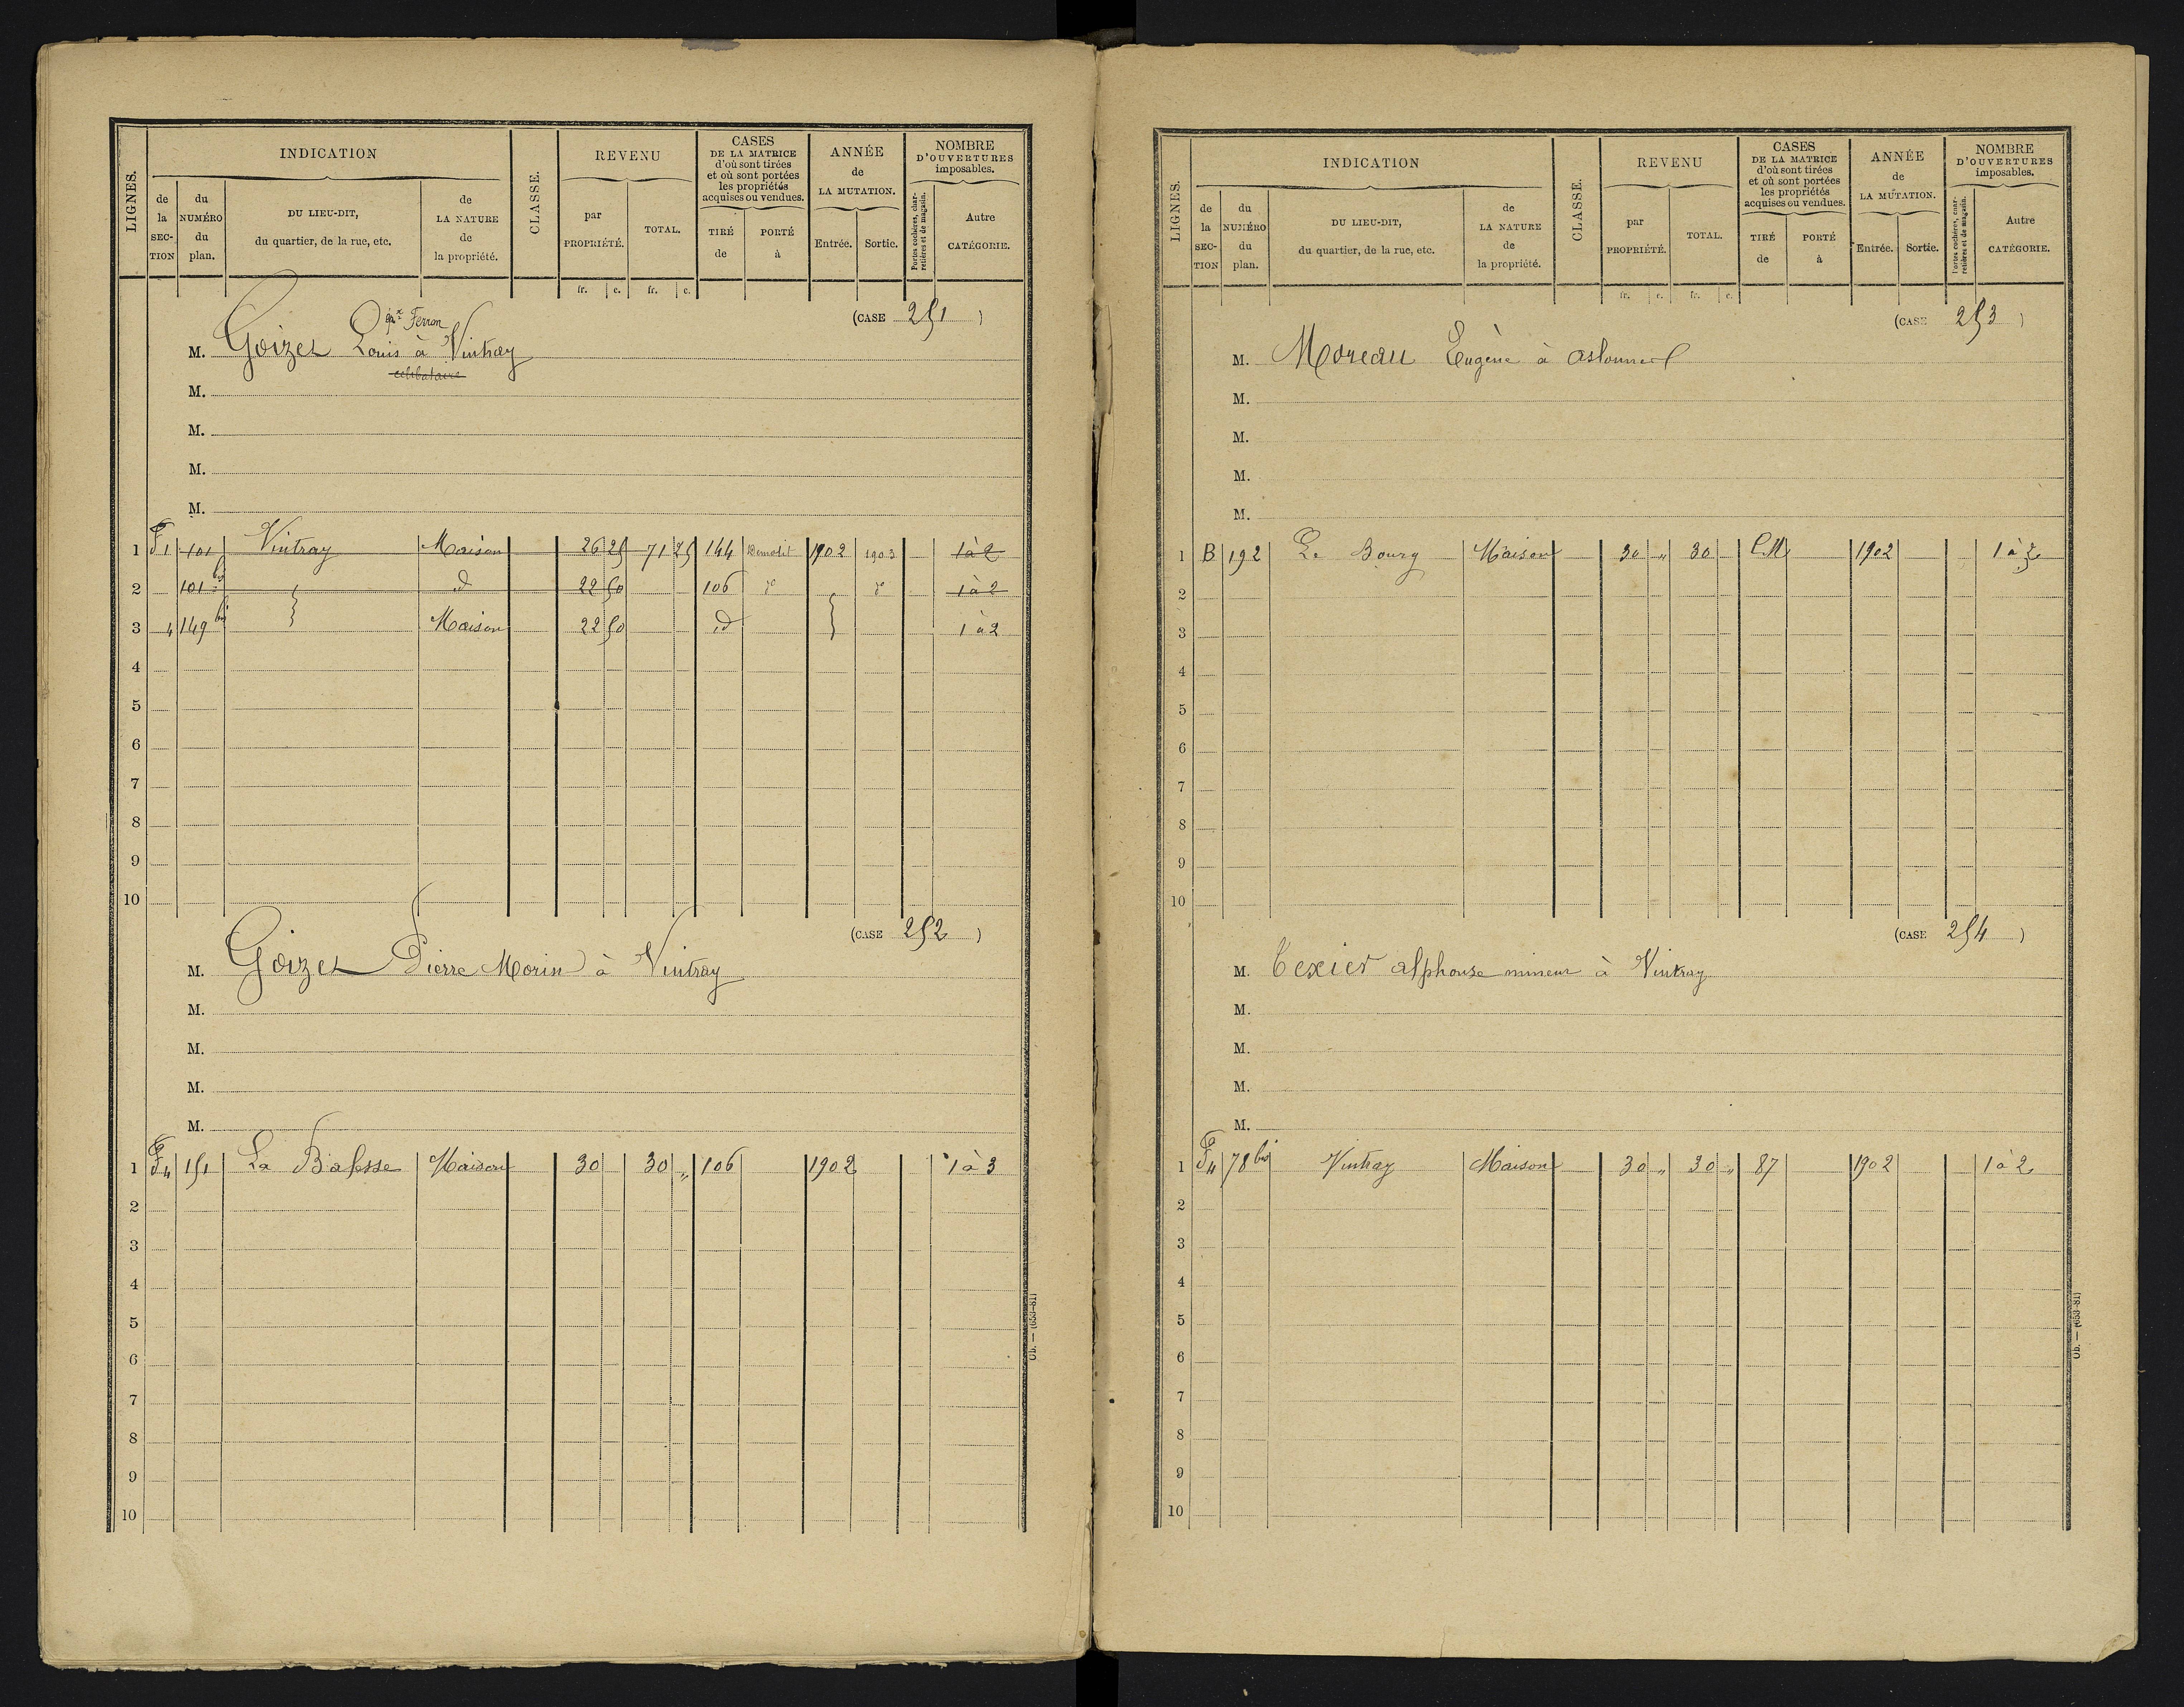 LIGNES.
INDICATION
de la SECTION
du NUMÉRO du plan.
DU LIEU-DIT, du quartier, de la rue, etc.
de LA NATURE de la propriété.
CLASSE.
REVENU
par PROPRIÉTÉ.
TOTAL.
CASES DE LA MATRICE d'où sont tirées et où sont portées les propriétés acquises ou vendues.
TIRÉ de
PORTÉ à
ANNÉE de LA MUTATION.
Entrée.
Sortie.
NOMBRE D'OUVERTURES imposables.
Portes cochères, charretières et de magasin.
Autre CATÉGORIE.
fr. c. fr. c.
(CASE 251)
Ferron
M. Goizet Louis à Vintray
célibataire
M.
M.
M.
M.
1 F1 101 Vintray Maison 26 25 71 25 144 Démolit 1902 1903 1 à 2
2 101 bis d 22 50 106 d° d° 1 à 2
3 4 149 bis Maison 22 50 id 1 à 2
4
5
6
7
8
9
10
(CASE 252)
M. Goizet Pierre Morin à Vintray
M.
M.
M.
M.
1 F4 151 La Bafosse Maison 30 30 " 106 1902 1 à 3
2
3
4
5
6
7
8
9
10
Ob. — (653-81)
LIGNES.
INDICATION
de la SECTION
du NUMÉRO du plan.
DU LIEU-DIT, du quartier, de la rue, etc.
de LA NATURE de la propriété.
CLASSE.
REVENU
par PROPRIÉTÉ.
TOTAL.
CASES DE LA MATRICE d'où sont tirées et où sont portées les propriétés acquises ou vendues.
TIRÉ de
PORTÉ à
ANNÉE de LA MUTATION.
Entrée.
Sortie.
NOMBRE D'OUVERTURES imposables.
Portes cochères, charretières et de magasin.
Autre CATÉGORIE.
fr. c. fr. c.
(CASE 253)
M. Moreau Eugène à aslonnes
M.
M.
M.
M.
1 B 192 Le Bourg Maison 30 " 30 1902 1 à
2
3
4
5
6
7
8
9
10
(CASE 254)
M. Texier alphonse mineur à Vintray
M.
M.
M.
M.
1 F4 78 bis Vintray Maison 30 " 30 " 87 1902 1 à 2
2
3
4
5
6
7
8
9
10
Ob. — (653-81)